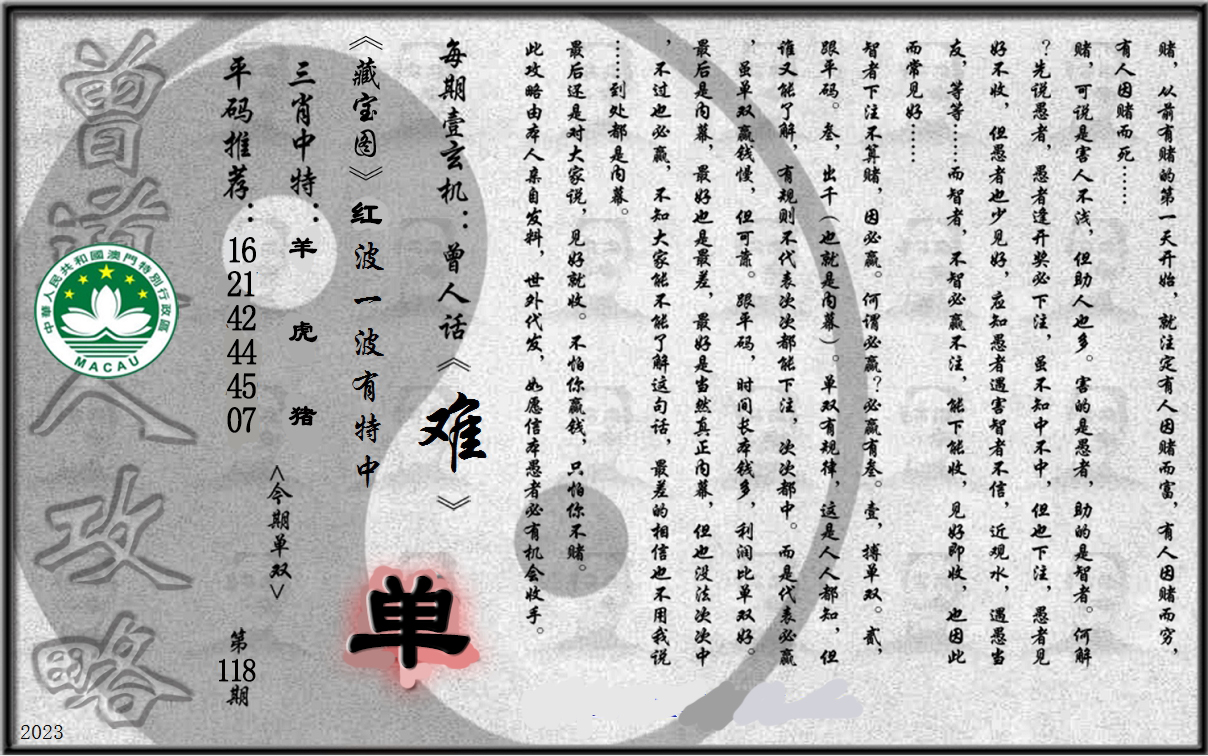 赌，从前有赌的第一天开始，就注定有人因赌而富，有人因赌而穷，
有人因赌而死……
赌，可说是害人不浅，但助人也多。害的是愚者，助的是智者。何解
？先说愚者，愚者逢开奖必下注，虽不知中不中，但也下注，愚者见
好不收，但愚者也少见好，应知愚者遇害智者不信，近观水，遇愚当
友，等等……而智者，不智必赢不注，能下能收，见好即收，也因此
而常见好……
智者下注不算赌，因必赢。何谓必赢？必赢有叁。壹，搏单双。贰，
跟平码。叁，出千（也就是内幕）。单双有规律，这是人人都知，但
谁又能了解，有规则不代表次次都能下注，次次都中。而是代表必赢
，虽单双赢钱慢，但可靠。跟平码，时间长本钱多，利润比单双好。
最后是内幕，最好也是最差，最好是当然真正内幕，但也没法次次中
，不过也必赢，不知大家能不能了解这句话，最差的相信也不用我说
……到处都是内幕。
最后还是对大家说，见好就收。不怕你赢钱，只怕你不赌。
此攻略由本人亲自发料，世外代发，如愿信本愚者必有机会收手。
每期壹玄机：曾人话《难》
《藏宝图》红波一波有特中
单
三肖中特：羊虎猪
<今期单双>
平码推荐：16 21 42 44 45 07
第118期
曾道人攻略
中華人民共和國澳門特別行政區
MACAU
2023